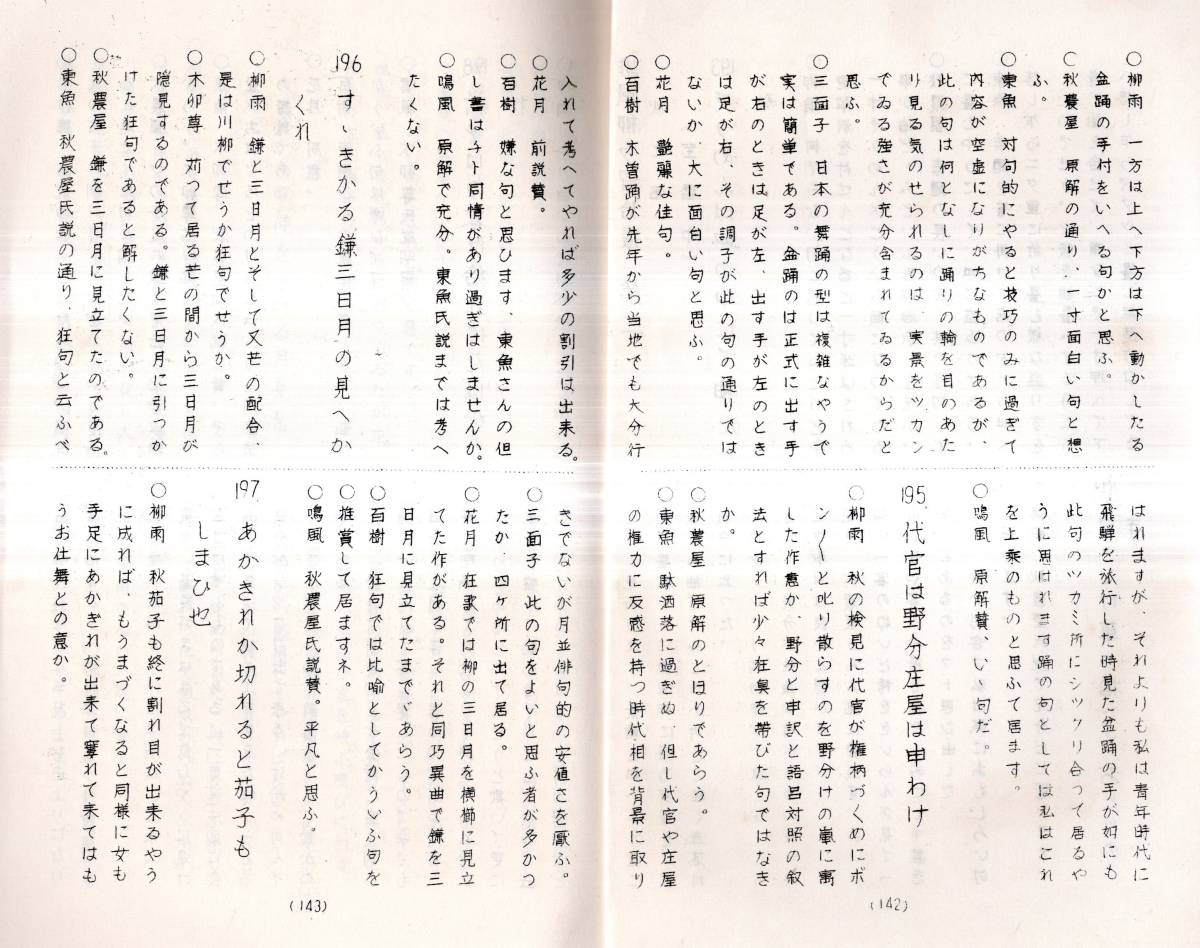 ○柳雨 一方は上へ下方は下へ動かしたる
盆踊の手付をいへる句かと思ふ。
○秋農屋 原解の通り一寸面白い句と想
ふ。
○東魚 対句的にやると技巧のみに過ぎて
内容が空虚になりがちなものであるが、
此の句は何となしに踊りの輪を目のあた
り見る気のせられるのは、実景をツカン
でゐる強さが充分含まれてゐるからだと
思ふ。
○三面子 日本の舞踊の型は複雑なやうで
実は簡単である。盆踊のは正式に出す手
が右のときは足が左、出す手が左のとき
は足が右、その調子が此の句の通りでは
ないか、大に面白い句と思ふ。
○花月 艶麗な佳句。
○百樹 木曽踊が先年から当地でも大分行
はれますが、それよりも私は青年時代に
飛騨を旅行した時見た盆踊の手が如にも
此句のツカミ所にシックリ合って居るや
うに思はれます踊の句としては私はこれ
を上乗のものと思ふて居ます。
○鳴風 原解賛、いゝ句だ。
195. 代官は野分庄屋は申わけ
○柳雨 秋の検見に代官が権柄づくめにポ
ン〳〵と叱り散らすのを野分けの嵐に寓
した作意か、野分と申訳と語呂対照の叙
法とすれば少々狂臭を帯びた句ではなき
か。
○秋農屋 原解のとほりであらう。
○東魚 駄洒落に過ぎぬ、但し代官や庄屋
の権力に反感を持つ時代相を背景に取り
(142)
入れて考へてやれば多少の割引は出来る。
○花月 前説賛。
○百樹 嫌な句と思ひます、東魚さんの但
し書はチト同情があり過ぎはしませんか。
○鳴風 原解で充分。東魚氏説までは考へ
たくない。
196 すゝきかる鎌三日月の見へか
くれ
○柳雨 鎌と三日月とそして又芒の配合、
是は川柳でせうか狂句でせうか。
○木卯尊 苅つて居る芒の間から三日月が
隠見するのである。鎌と三日月に引つか
けた狂句であると解したくない。
○秋農屋 鎌を三日月に見立てたのである。
○東魚 秋農屋氏説の通り、狂句と云ふべ
きでないが月並俳句的の安値さを厭ふ。
○三面子 此の句をよいと思ふ者が多かつ
たか、四ヶ所に出て居る。
○花月 狂歌では柳の三日月を横櫛に見立
てた作がある。それと同巧異曲で鎌を三
日月に見立てたまでであらう。
○百樹 狂句では比喩としてかういふ句を
推賞して居ますネ。
○鳴風 秋農屋氏説賛。平凡と思ふ。
197. あかきれか切れると茄子も
しまひ也
○柳雨 秋茄子も終に割れ目が出来るやう
に成れば、もうまづくなると同様に女も
手足にあかぎれが出来て窶れて来てはも
うお仕舞との意か。
(143)